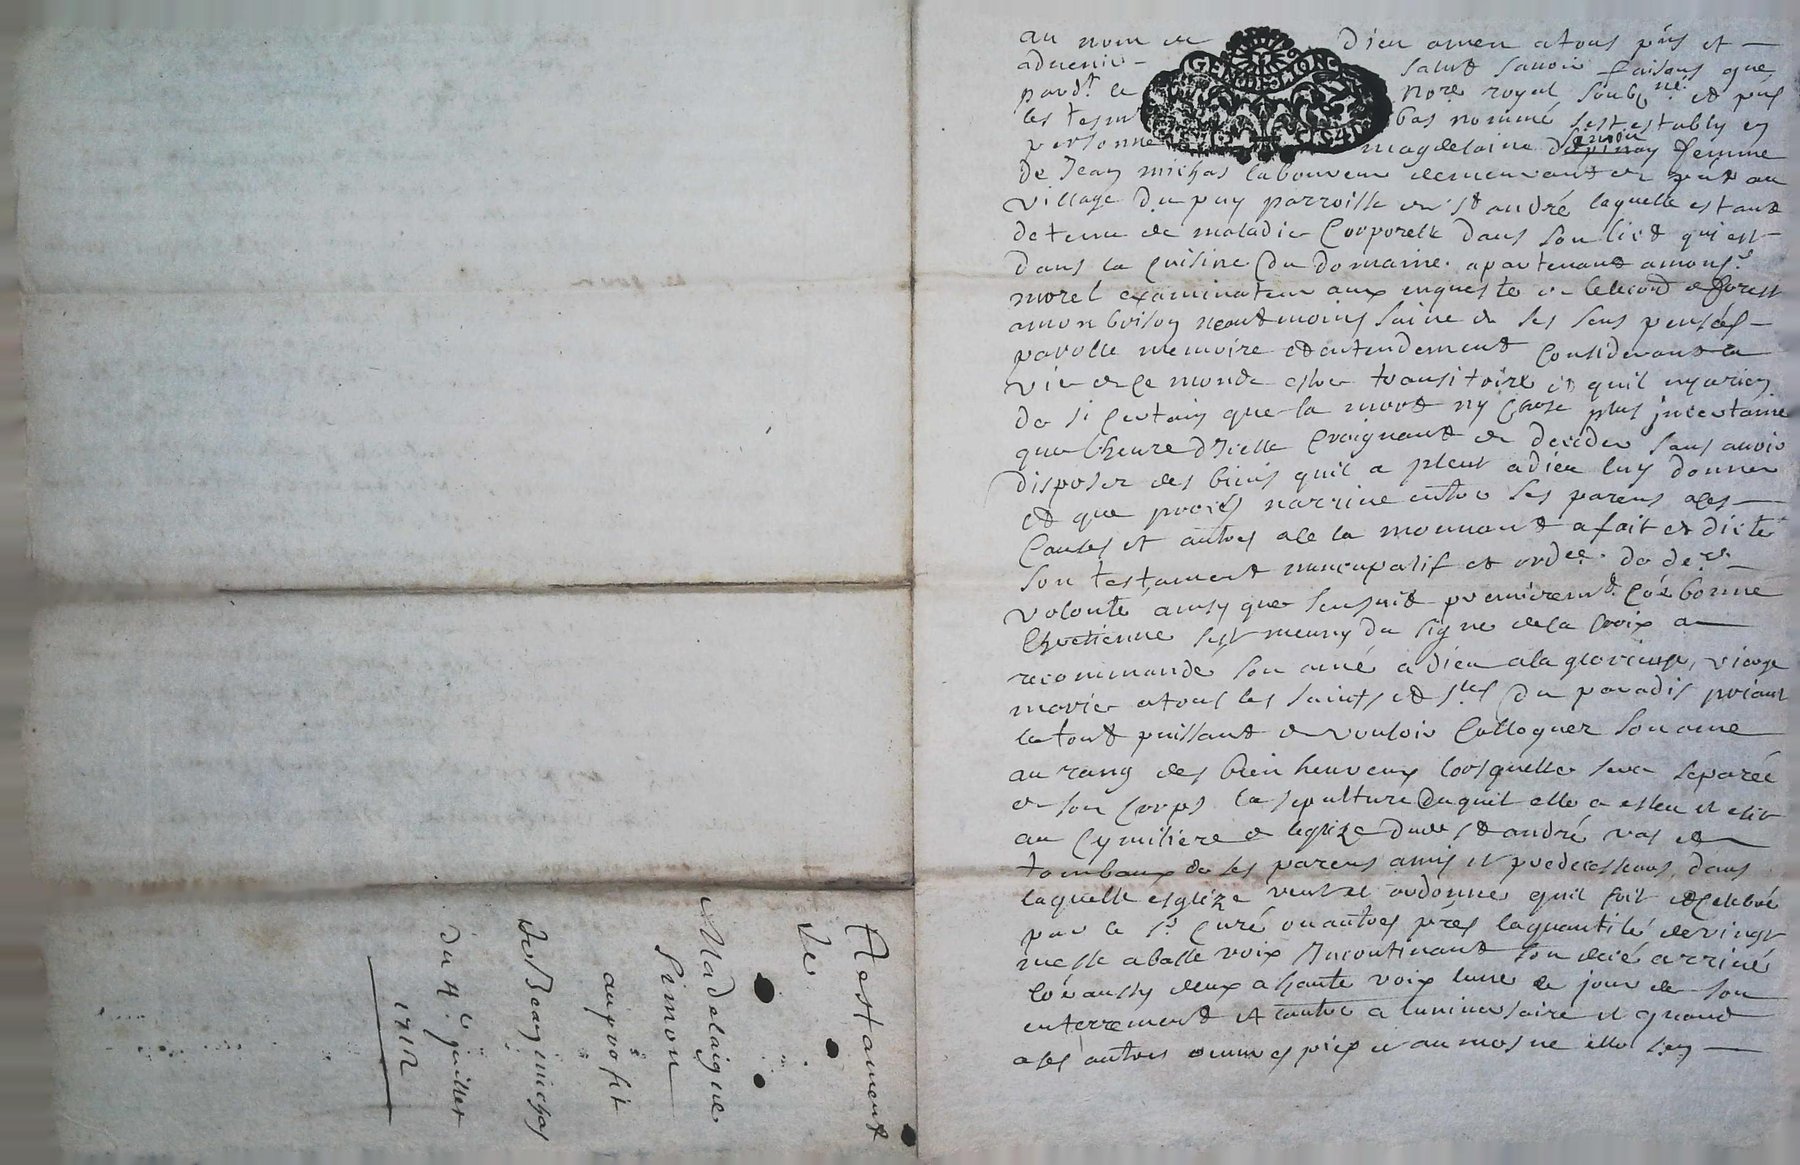 au nom de Dieu amen a tous pñs et
advenir salut savoir faisons que
pard.t le nore royal soubs.né et
les tesm bas nommé s'est estably en
personne magdelaine simon femme
de Jean michas laboureur demeurant au
village du puy parroisse de st andré laquelle estant
detenu de maladie corporelle dans son lict qui est
dans la cuisine du domaine apartenant a mons.r
morel examinateur aux enqueste de forest
a monbrison neautmoins saine de ses sens pensés
parolle memoire et entendement considerant la
vie de ce monde estre transitoire et quil ny a rien
de si certain que la mort ny chose plus incertaine
que lheure d'icelle craignant de deceder sans avoir
disposer des biens quil a pleut a dieu luy donner
et que procès narrive entre ses parens
et autres a fait et dicté
son testament nuncupatif et ord.ce de de.re
volonté ainsy que sensuit premierem.t coe bonne
chretienne sest meuny du signe de la croix a
recommandé son ame a dieu a la glorieuse vierge
marie a tous les saints et s.tes du paradis priant
le tout puissant de vouloir colloquer son ame
au rang des bien heureux lorsquelle sera separée
de son corps la sepulture duquel elle a esleu et elit
au cymitiere de leglize dud st andré vas et
tombaux de ses parens amis et predecesseurs dans
laquelle esglize veut et ordonne quil soit celebré
par le s.r curé ou autres pñtres la quantité de vingt
messe a basse voix incontinant son decé arrivé
coe aussy deux a haute voix lune le jour de son
enterrement et lautre a luniversaire et quand
a ses autres œuvres piex et aumosne elle sen
Testament
de
Madelaigne
simon
au profit
de Jean michas
du 4.e juillet
1712